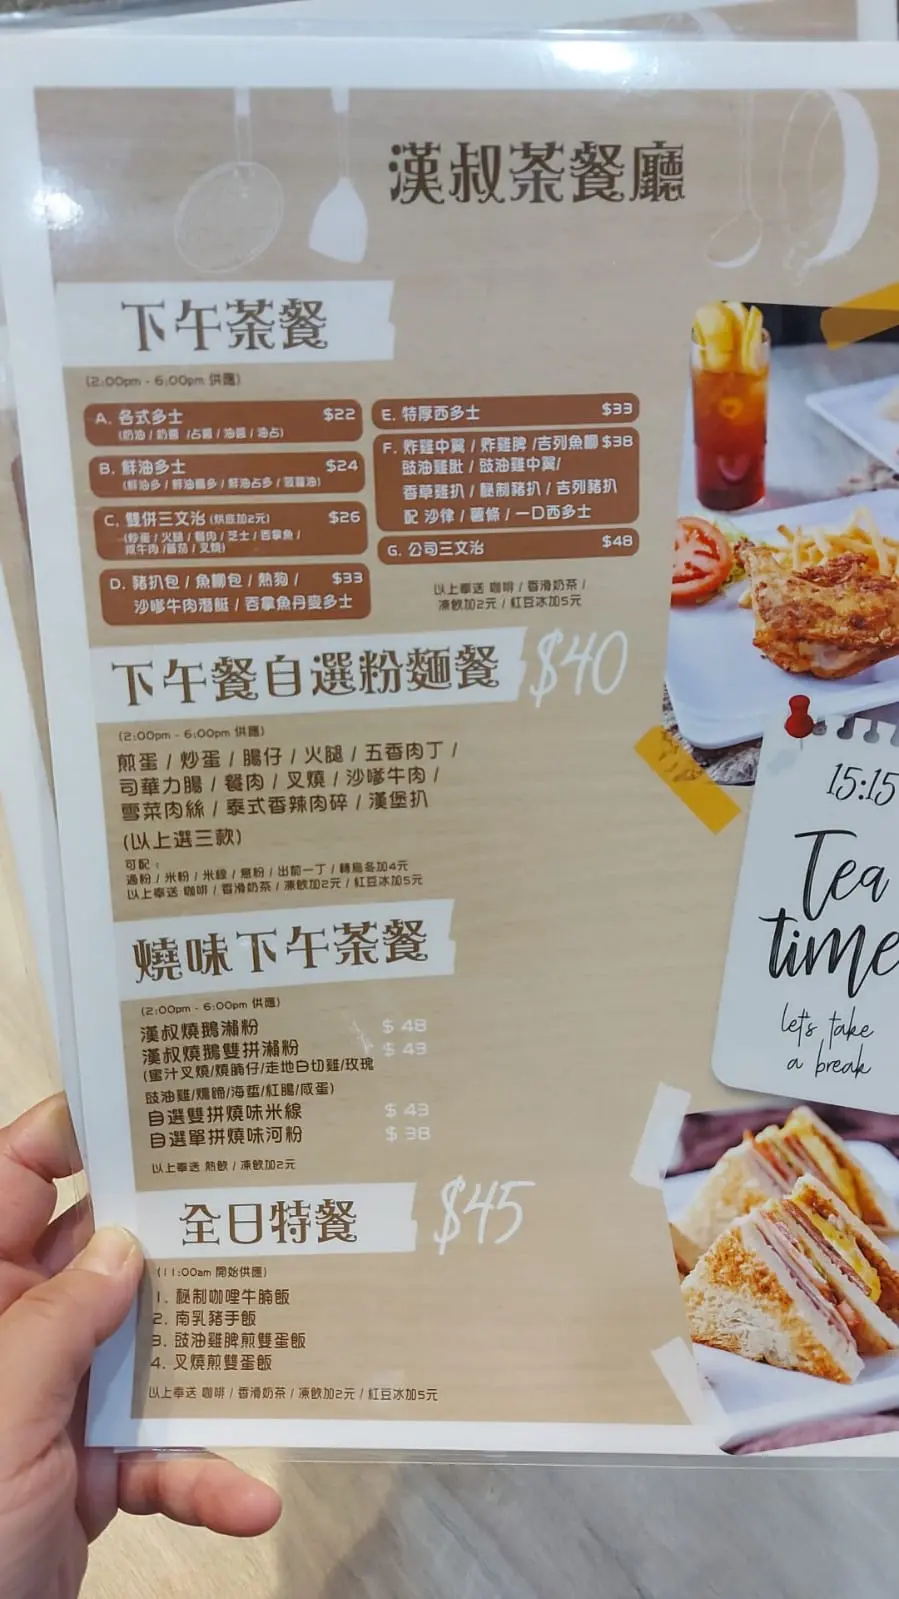 漢叔茶餐廳
下午茶餐
(2:00pm - 6:00pm 供應)
A. 各式多士 $22
(奶油 / 奶醬 / 占醬 / 油醬 / 油占)
B. 鮮油多士 $24
(鮮油多 / 鮮油醬多 / 鮮油占多 / 菠蘿油)
C. 雙併三文治 (烘底加2元) $26
(炒蛋 / 火腿 / 餐肉 / 芝士 / 吞拿魚 /
咸牛肉 / 蕃茄 / 叉燒)
D. 豬扒包 / 魚柳包 / 熱狗 / $33
沙嗲牛肉潛艇 / 吞拿魚丹麥多士
E. 特厚西多士 $33
F. 炸雞中翼 / 炸雞脾 / 吉列魚柳 $38
豉油雞肶 / 豉油雞中翼/
香草雞扒 / 秘制豬扒 / 吉列豬扒
配 沙律 / 薯條 / 一口西多士
G. 公司三文治 $48
以上奉送 咖啡 / 香滑奶茶 /
凍飲加2元 / 紅豆冰加5元
下午餐自選粉麵餐 $40
(2:00pm - 6:00pm 供應)
煎蛋 / 炒蛋 / 腸仔 / 火腿 / 五香肉丁 /
司華力腸 / 餐肉 / 叉燒 / 沙嗲牛肉 /
雪菜肉絲 / 泰式香辣肉碎 / 漢堡扒
(以上選三款)
可配：
通粉 / 米粉 / 米線 / 意粉 / 出前一丁 / 轉烏冬加4元
以上奉送 咖啡 / 香滑奶茶 / 凍飲加2元 / 紅豆冰加5元
燒味下午茶餐
(2:00pm - 6:00pm 供應)
漢叔燒鵝瀨粉 $48
漢叔燒鵝雙拼瀨粉 $43
(蜜汁叉燒/燒腩仔/走地白切雞/玫瑰
豉油雞/燻蹄/海蜇/紅腸/咸蛋)
自選雙拼燒味米線 $43
自選單拼燒味河粉 $38
以上奉送 熱飲 / 凍飲加2元
全日特餐 $45
(11:00am 開始供應)
1. 秘制咖哩牛腩飯
2. 南乳豬手飯
3. 豉油雞脾煎雙蛋飯
4. 叉燒煎雙蛋飯
以上奉送 咖啡 / 香滑奶茶 / 凍飲加2元 / 紅豆冰加5元
15:15
Tea
time
let's take
a break